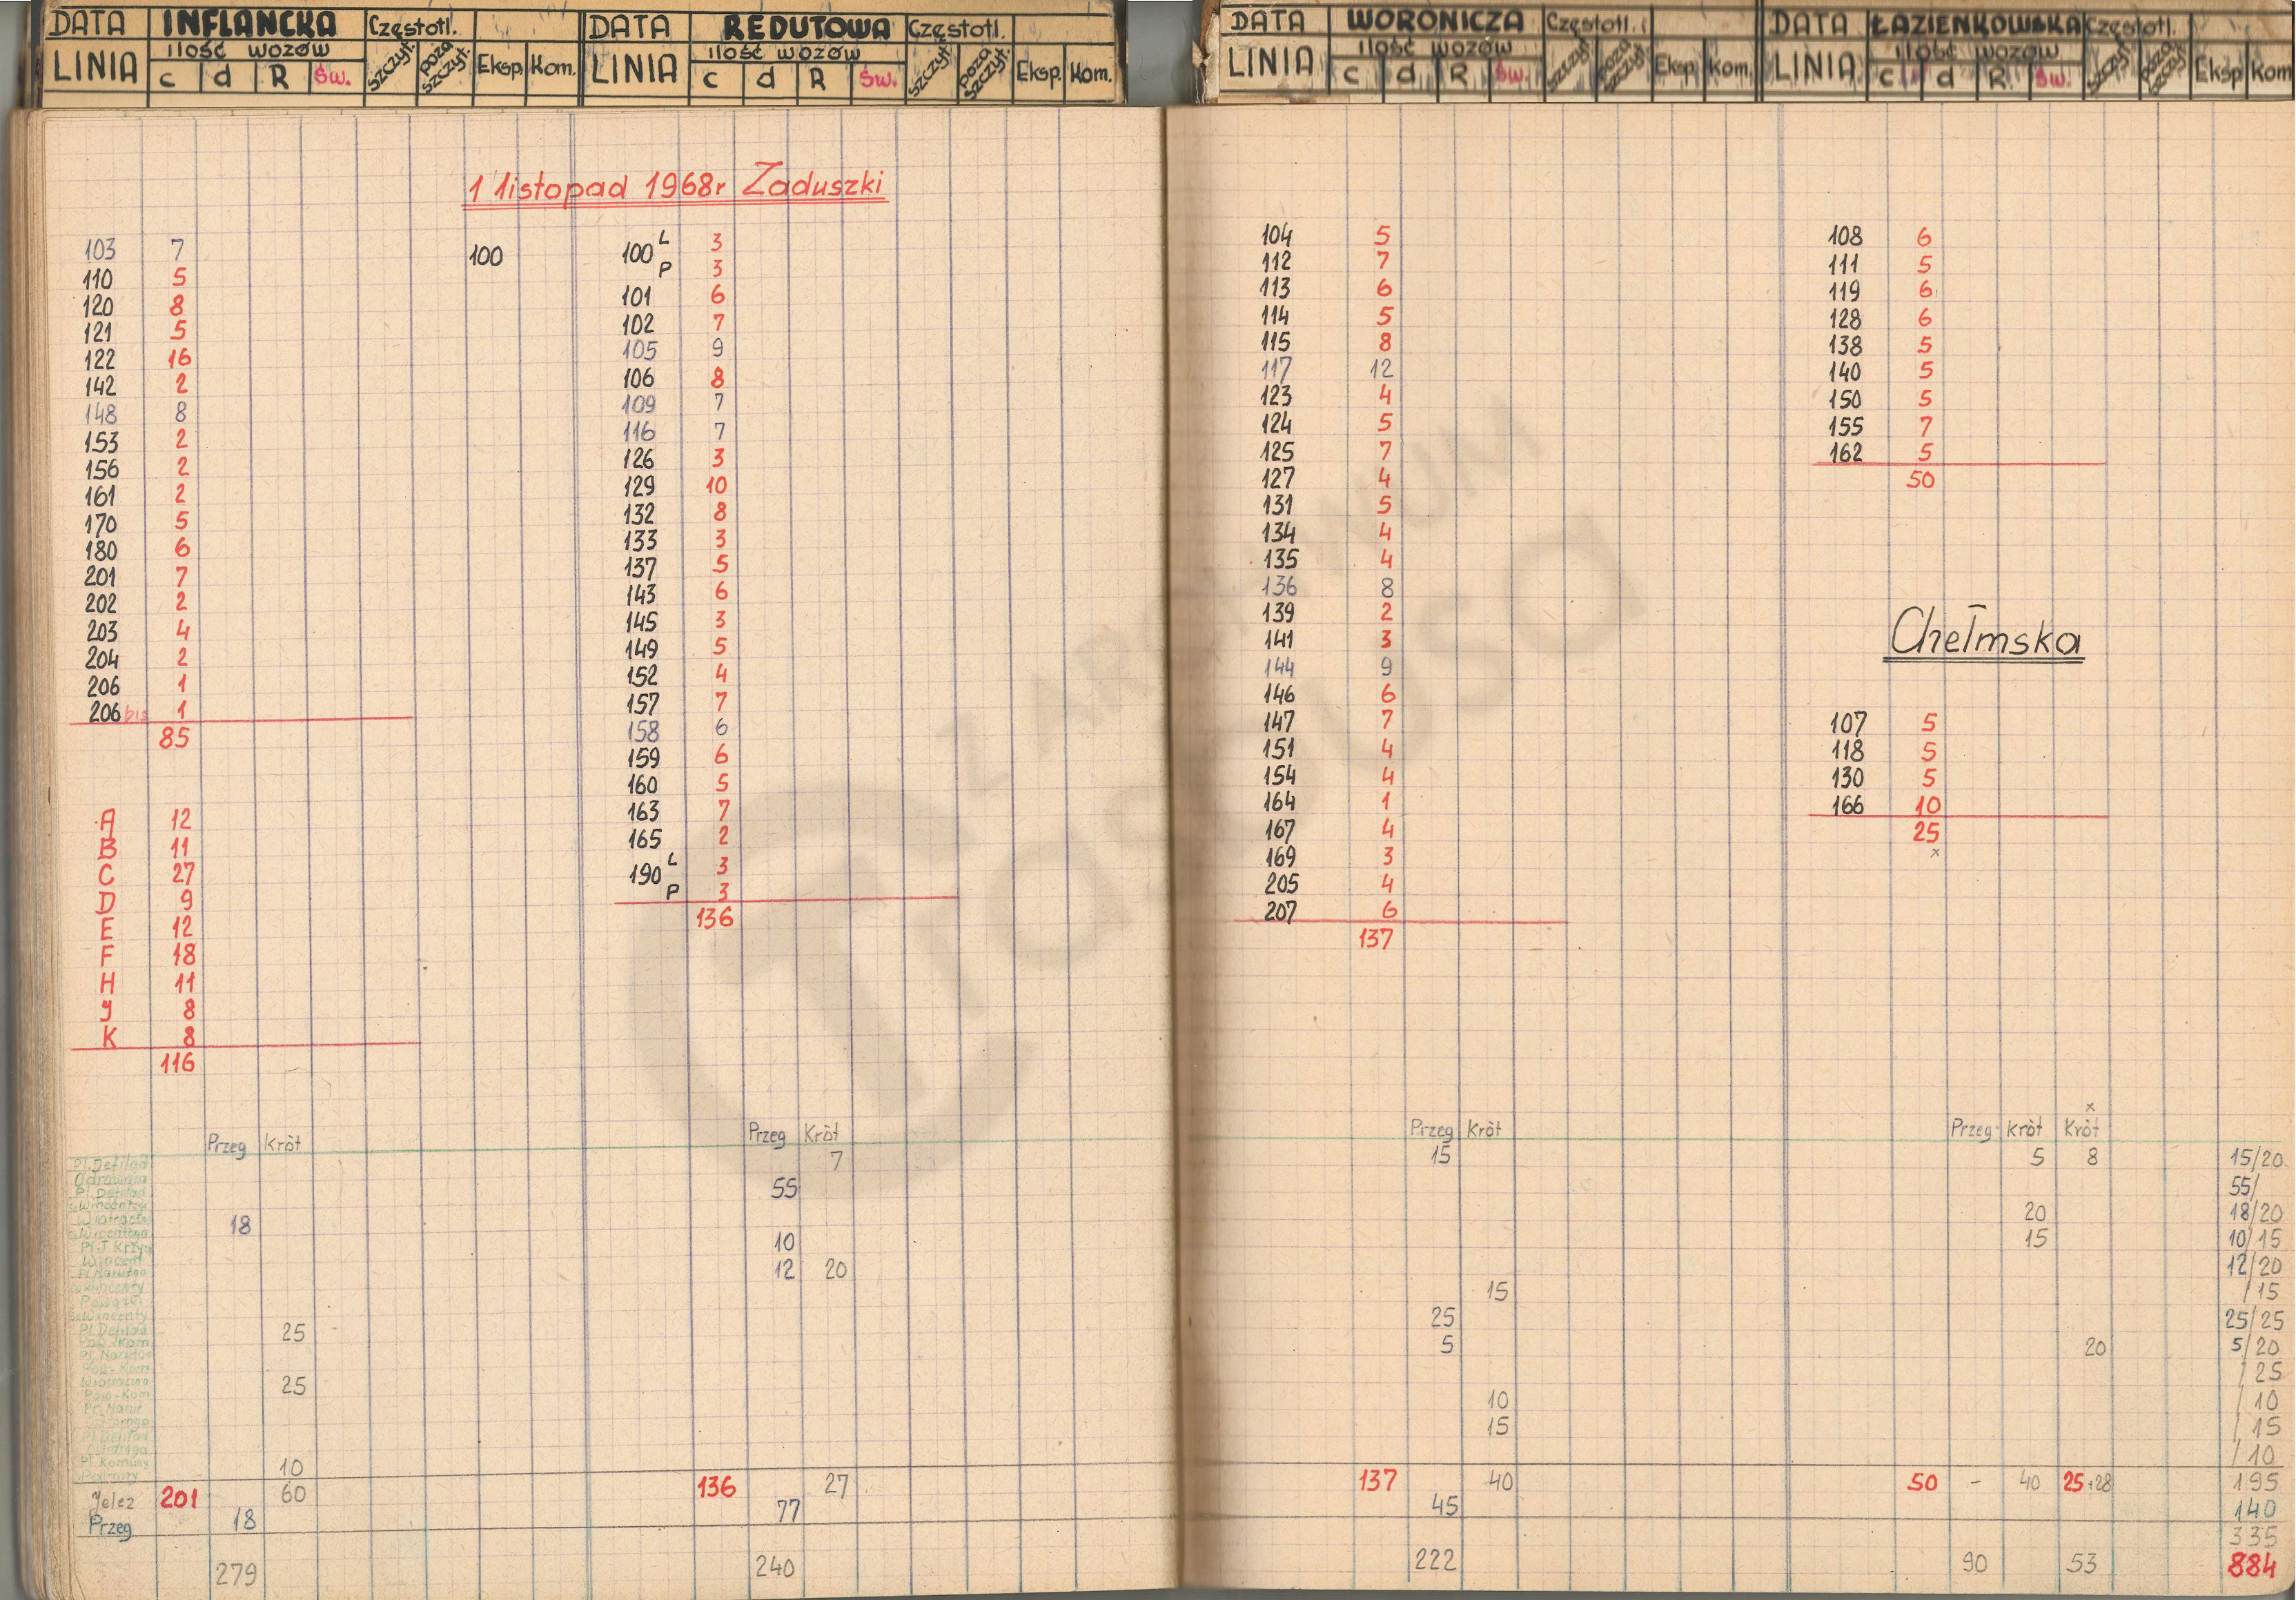 DATA INFLANCKA Częstotl.
LINIA ilość wozów szczyt. poza szczyt. Eksp. Kom.
c d R Św.
DATA REDUTOWA Częstotl.
LINIA ilość wozów szczyt. poza szczyt. Eksp. Kom.
c d R Św.
DATA WORONICZA Częstotl.
LINIA ilość wozów szczyt. poza szczyt. Eksp. Kom.
c d R Św.
DATA ŁAZIENKOWSKA Częstotl.
LINIA ilość wozów szczyt. poza szczyt. Eksp Kom
c d R Św.
1 listopad 1968r Zaduszki
103 7
110 5
120 8
121 5
122 16
142 2
148 8
153 2
156 2
161 2
170 5
180 6
201 7
202 2
203 4
204 2
206 1
206 bis 1
85
A 12
B 11
C 27
D 9
E 12
F 18
H 11
J 8
K 8
116
100
100 L 3
P 3
101 6
102 7
105 9
106 8
109 7
116 7
126 3
129 10
132 8
133 3
137 5
143 6
145 3
149 5
152 4
157 7
158 6
159 6
160 5
163 7
165 2
190 L 3
P 3
136
104 5
112 7
113 6
114 5
115 8
117 12
123 4
124 5
125 7
127 4
131 5
134 4
135 4
136 8
139 2
141 3
144 9
146 6
147 7
151 4
154 4
164 1
167 4
169 3
205 4
207 6
137
108 6
111 5
119 6
128 6
138 5
140 5
150 5
155 7
162 5
50
Chełmska
107 5
118 5
130 5
166 10
25
x
x
Przeg Krót Przeg Krót Przeg Krót Przeg Krót Krót
Pl. Defilad 7 15 5 8 15/20
55 55/
18 20 18/20
10 15 10/15
12 20 12/20
15 /15
25 25 25/25
5 20 5/20
25 /25
10 /10
15 /15
10 /10
Jelcz 201 60 136 27 137 40 50 - 40 25+28 195
Przeg 18 77 45 140
335
279 240 222 90 53 884
Z ARCHIWUM
TRASBUSA